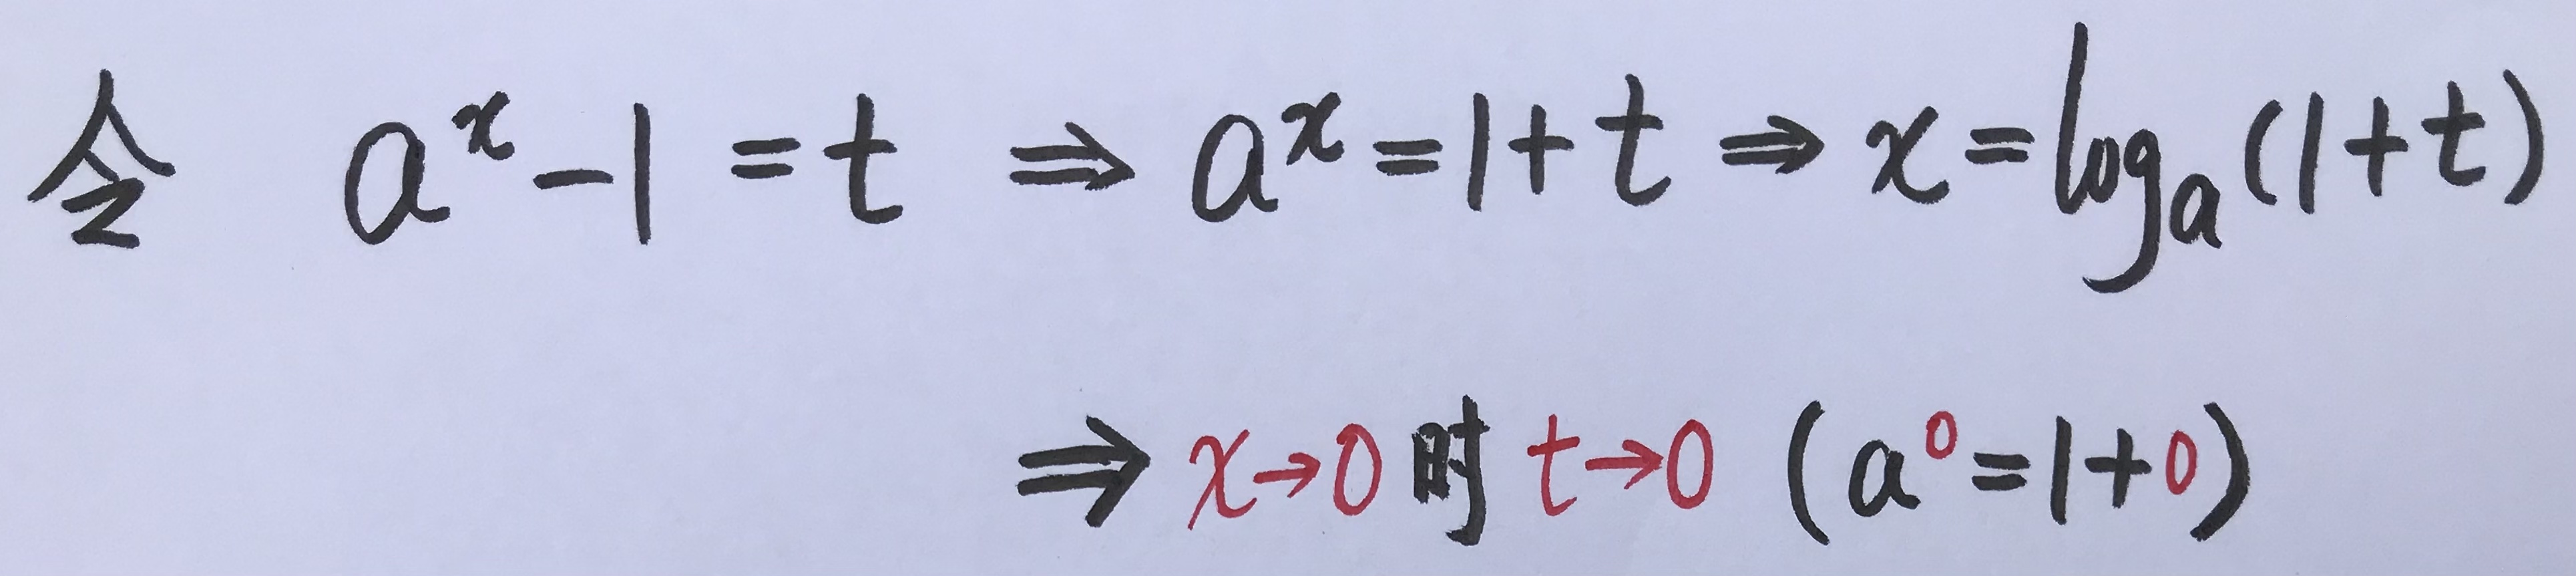 令 aˣ-1=t ⇒ aˣ=1+t ⇒ x=logₐ(1+t)
⇒ x→0时 t→0 (a⁰=1+0)